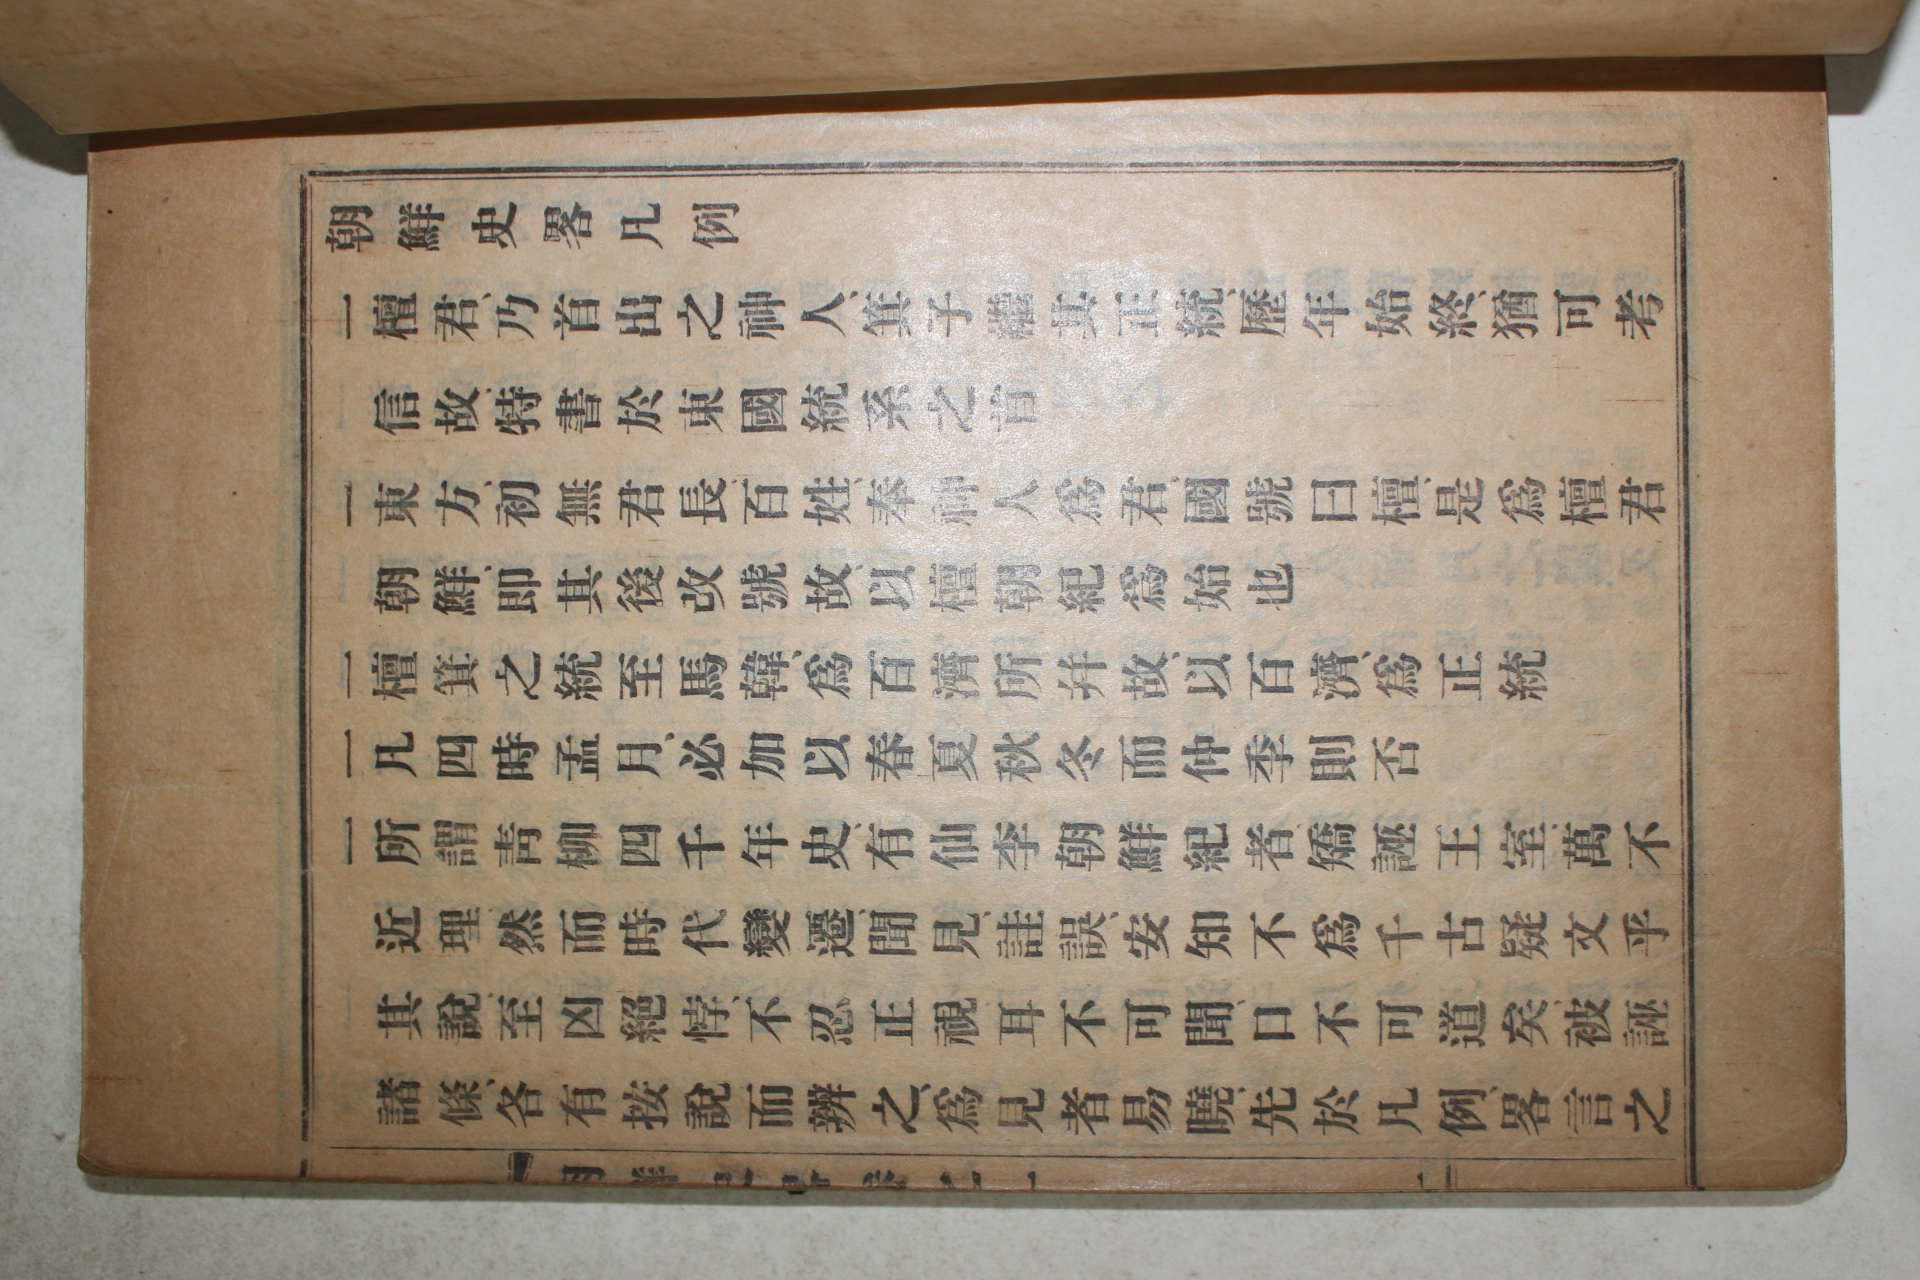 朝鮮史畧凡例
一檀君、乃首出之神人、箕子繼其正統、歷年始終、猶可考
信故、特書於東國統系之首
一東方、初無君長、百姓、奉神人爲君、國號曰檀、是爲檀君
朝鮮、即其後改號故、以檀朝紀爲始也
一檀箕之統至馬韓、爲百濟所幷故、以百濟、爲正統
一凡四時孟月、必加以春夏秋冬而仲季則否
一所謂靑柳四千年史、有仙李朝鮮紀者、矯誣王室、萬不
近理、然而時代變遷、聞見、詿誤、安知不爲千古疑文乎
其說、至凶絕悖、不忍正視、耳不可聞、口不可道矣、被誣
諸條、各有按說而辨之、爲見者易曉、先於凡例、畧言之
朝鮮史畧卷之一 一